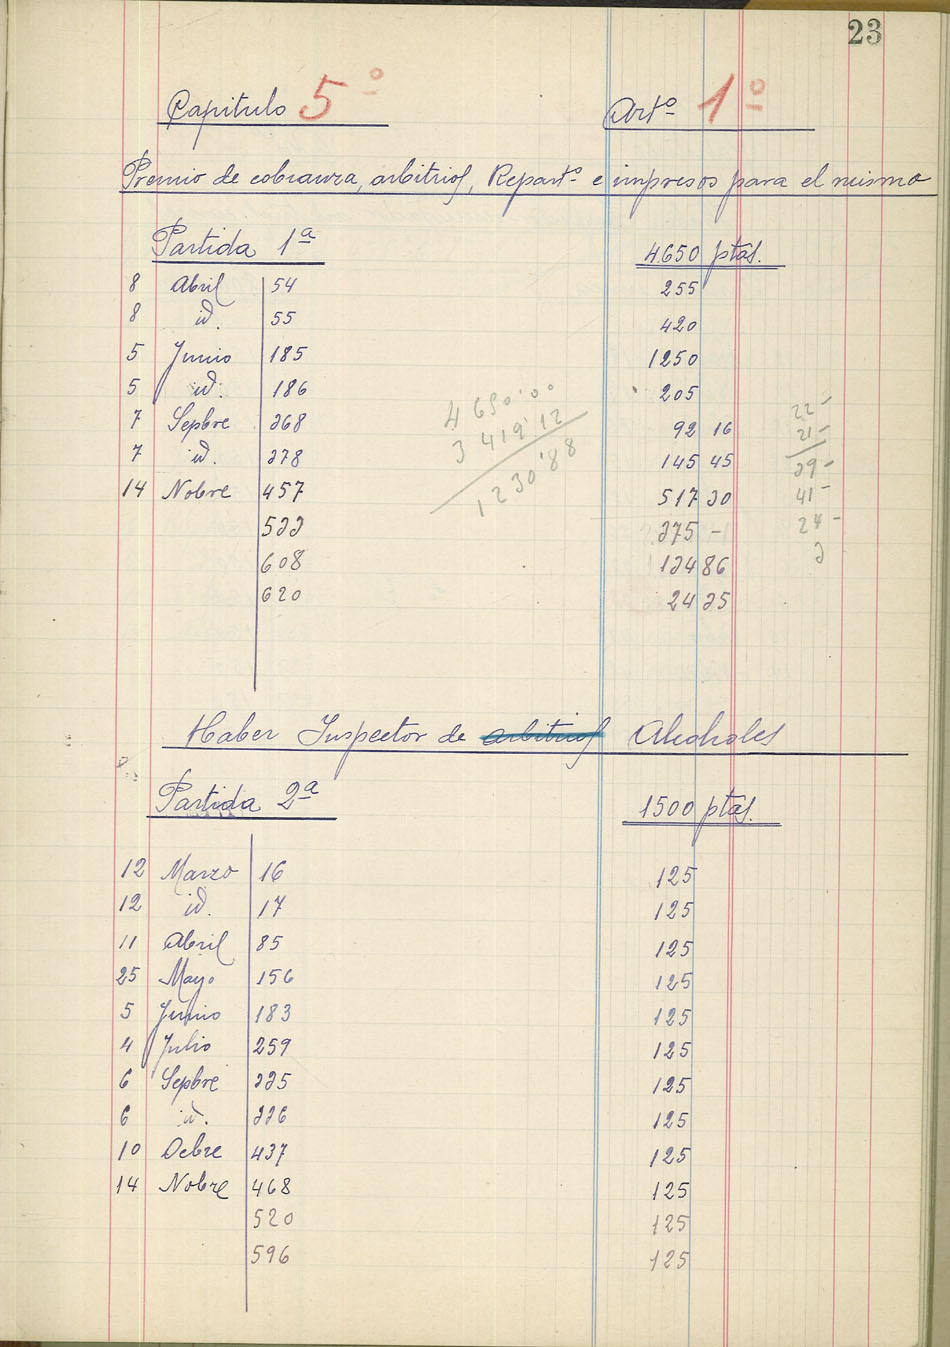 23
Capitulo 5º Artº 1º
Premio de cobranza, arbitrios, Repartº e impresos para el mismo
Partida 1ª 4.650 ptas.
8 Abril 54 255
8 id. 55 420
5 Junio 185 1250
5 id. 186 205
7 Sepbre 368 92 16
7 id. 378 145 45
14 Nobre 457 517 30
533 375 -
608 134 86
620 24 35
4650'00
3419'12
1230'88
22-
21-
39-
41-
24-
3
Haber Inspector de arbitrios Alcoholes
Partida 2ª 1500 ptas.
12 Marzo 16 125
12 id. 17 125
11 Abril 85 125
25 Mayo 156 125
5 Junio 183 125
4 Julio 259 125
6 Sepbre 335 125
6 id. 336 125
10 Ocbre 437 125
14 Nobre 468 125
520 125
596 125